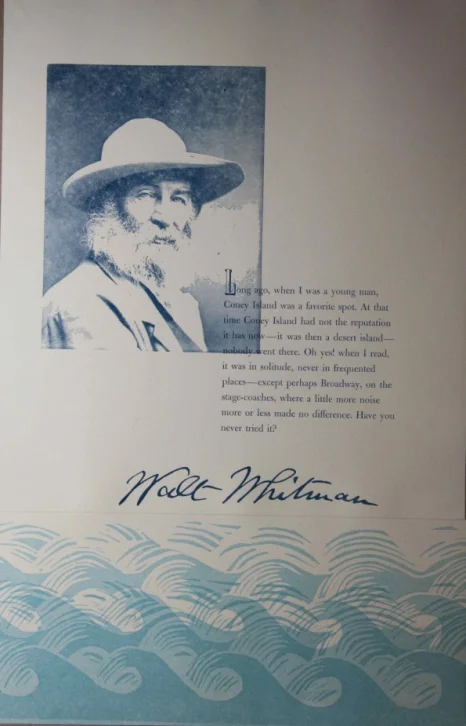 Long ago, when I was a young man,
Coney Island was a favorite spot. At that
time Coney Island had not the reputation
it has now—it was then a desert island—
nobody went there. Oh yes! when I read,
it was in solitude, never in frequented
places—except perhaps Broadway, on the
stage-coaches, where a little more noise
more or less made no difference. Have you
never tried it?
Walt Whitman